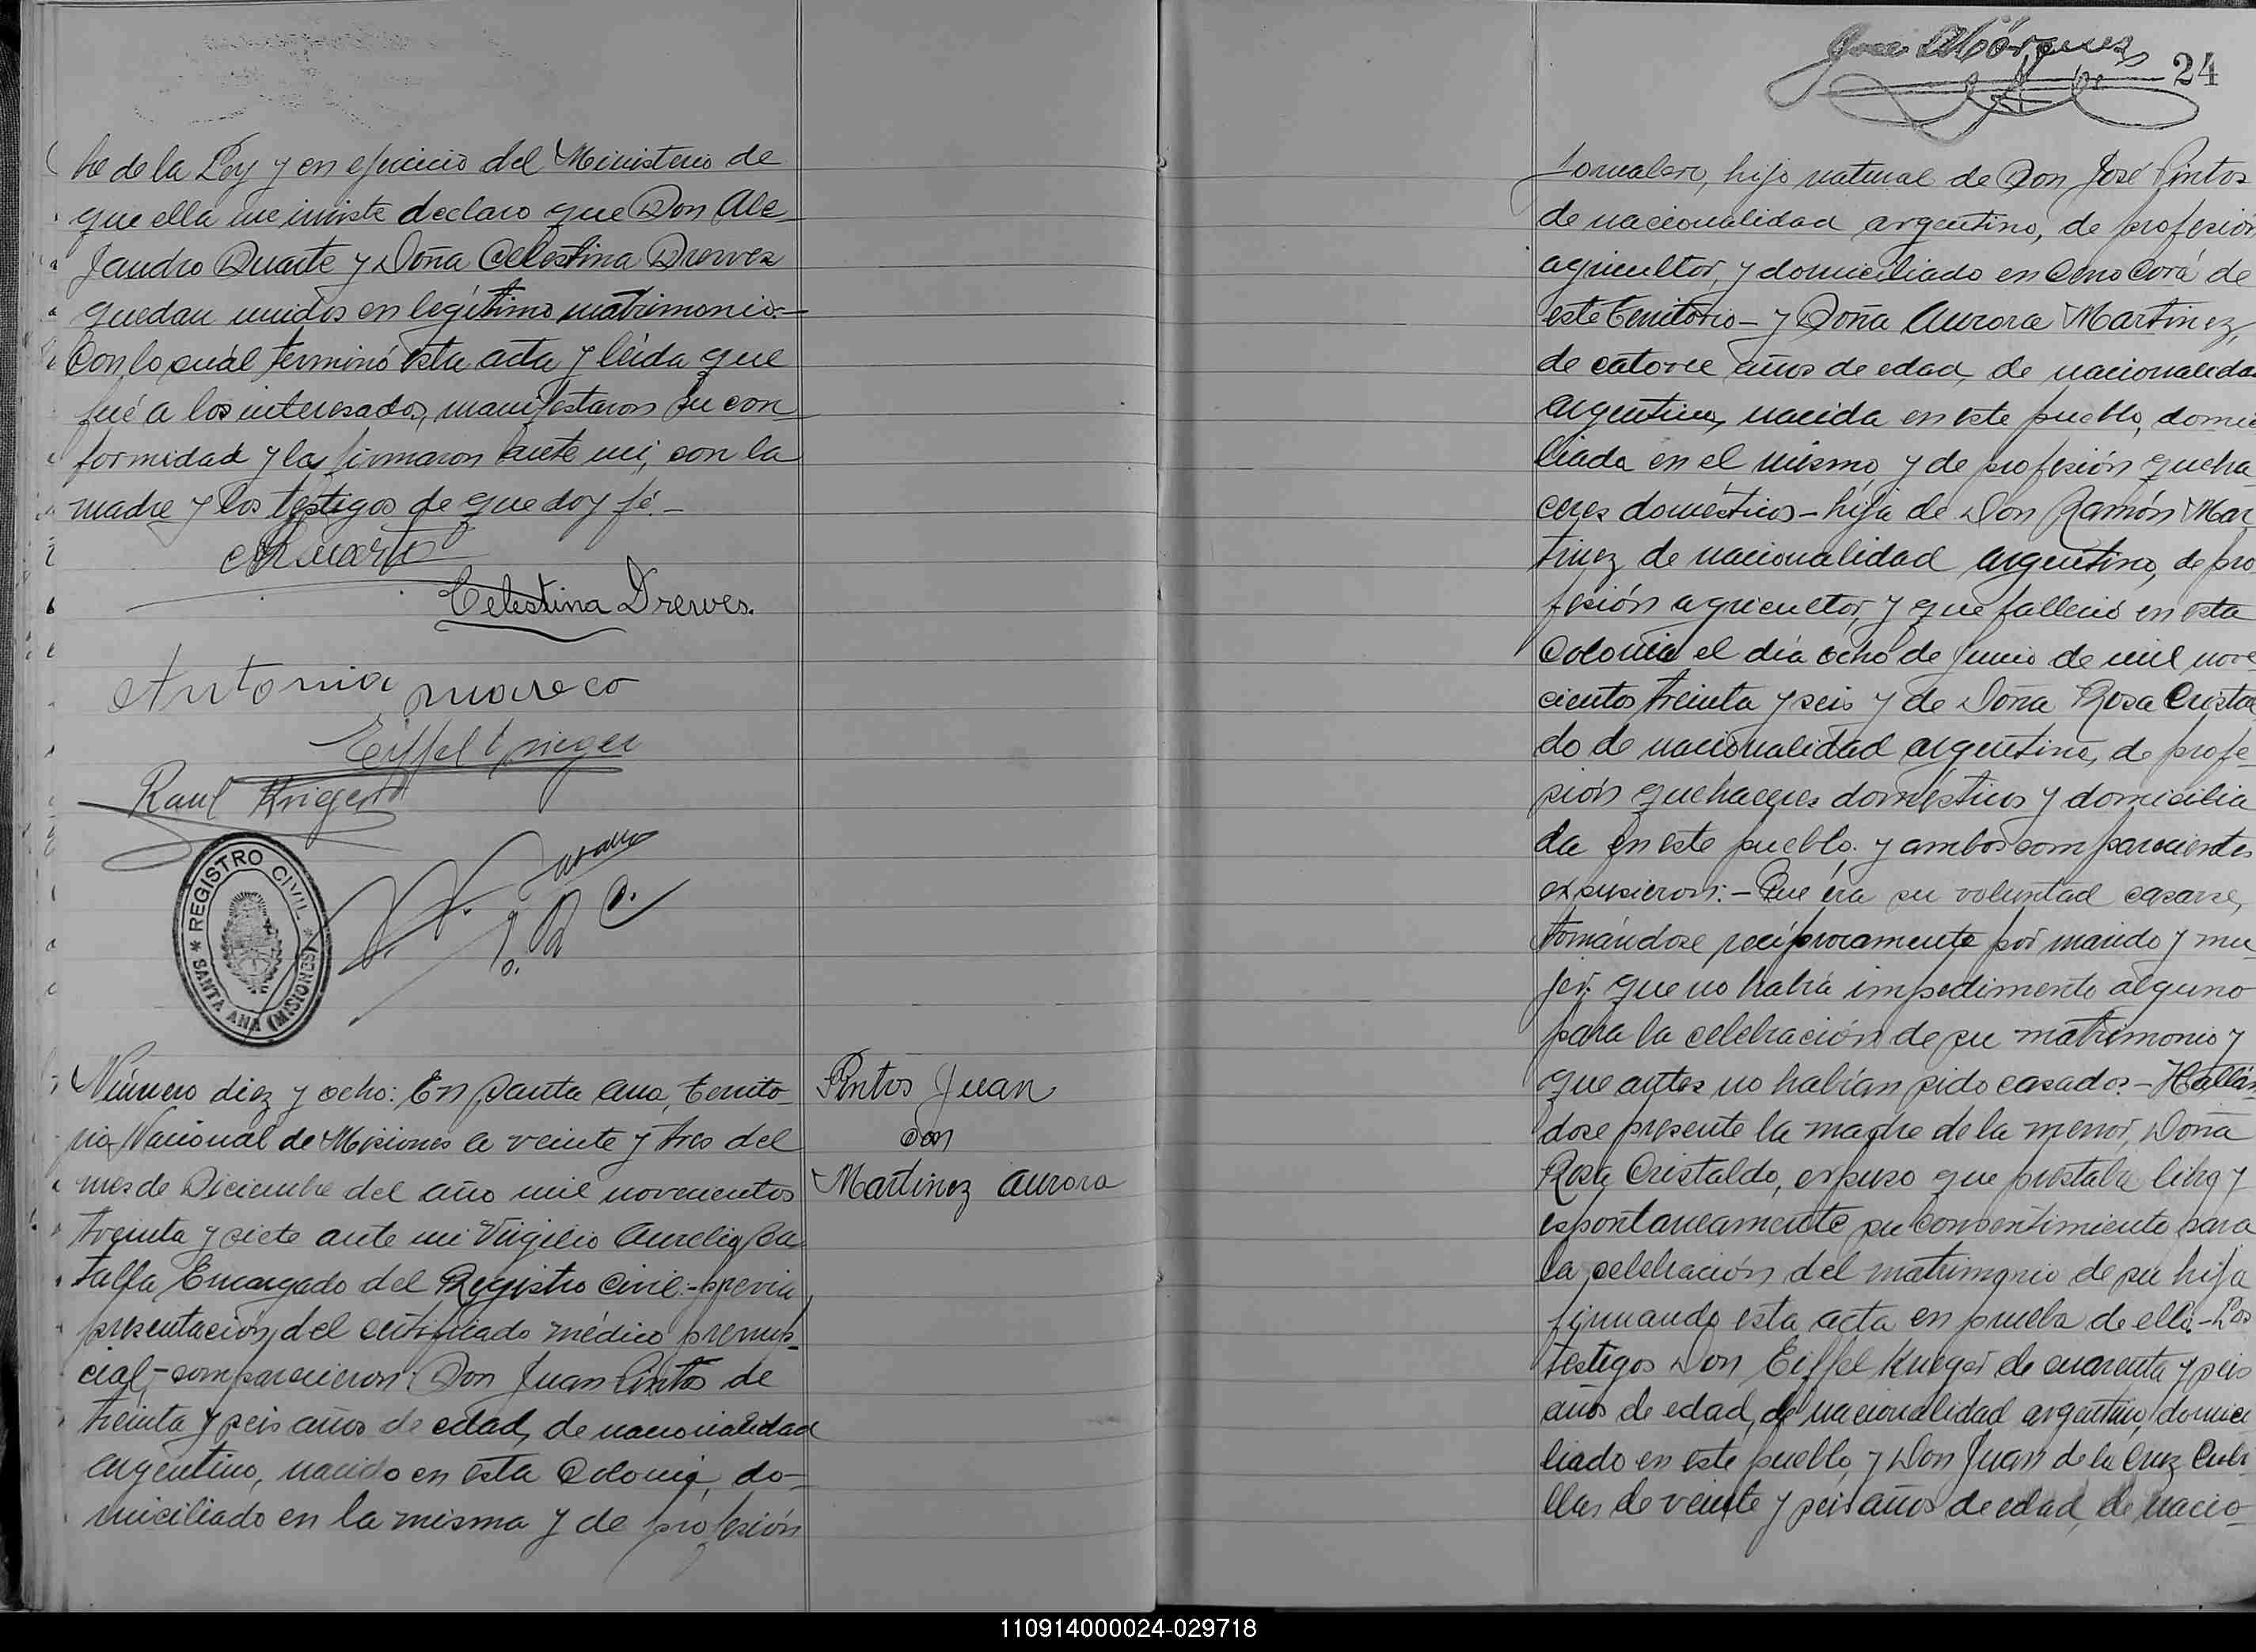 bre de la Ley y en ejercicio del Ministerio de
que ella me inviste declaro que Don Ale-
jandro Duarte y Doña Celestina Drewes
quedan unidos en legítimo matrimonio.-
Con lo cuál terminó esta acta y leída que
fué a los interesados, manifestaron su con-
formidad y la firmaron ante mi, con la
madre y los testigos de que doy fé.-
Celestina Drewes.
Antonia mareco
Eiffel Krieger
Raul Krieger
REGISTRO CIVIL
SANTA ANA (MISIONES)
Número diez y ocho: En Santa Ana, Territo-
rio Nacional de Misiones a veinte y tres del
mes de Diciembre del año mil novecientos
treinta y siete ante mi Virgilio Aurelio
Encargado del Registro Civil:-previa
presentación del certificado médico prenup-
cial,-comparecieron: Don Juan Pintos de
treinta y seis años de edad, de nacionalidad
argentino, nacido en esta Colonia, do-
miciliado en la misma y de profesión
Pintos Juan
con
Martinez Aurora
24
Jornalero, hijo natural de Don José Pintos
de nacionalidad argentino, de profesión
agricultor, y domiciliado en Cerro Corá de
este Territorio- y Doña Aurora Martinez,
de catorce años de edad, de nacionalidad
argentina, nacida en este pueblo, domici
liada en el mismo y de profesión queha
ceres domésticos-hija de Don Ramón Mar
tinez de nacionalidad argentino, de pro
fesión agricultor, y que falleció en esta
Colonia el día ocho de Junio de mil nove
cientos treinta y seis y de Doña Rosa Crista
do de nacionalidad argentina, de profe-
sión quehaceres domésticos y domicilia
da en este pueblo. y ambos comparecientes
expusieron:- Que era su voluntad casarse,
tomándose recíprocamente por marido y mu
jer. que no había impedimento alguno
para la celebración de su matrimonio y
que antes no habían sido casados.- Hallán
dose presente la madre de la menor, Doña
Rosa Cristaldo, expuso que prestaba libre y
espontaneamente su consentimiento para
la celebración del matrimonio de su hija
firmando esta acta en prueba de ello.-Los
testigos Don Eiffel Krieger de cuarenta y seis
años de edad, de nacionalidad argentino, domici
liado en este pueblo, y Don Juan de la Cruz Cubi
llas de veinte y seis años de edad, de nacio-
110914000024-029718